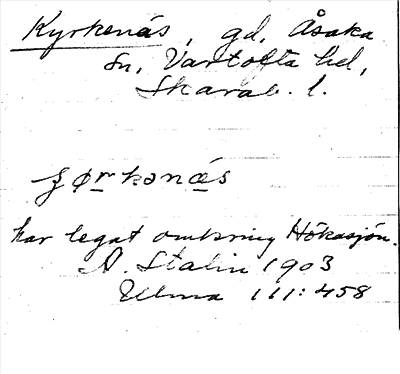 Kyrkenäs, gd, Åsaka
sn, Vartofta hd,
Skarab. l.
har legat omkring Hökasjön.
A. Stalin 1903
Ulma 111:458